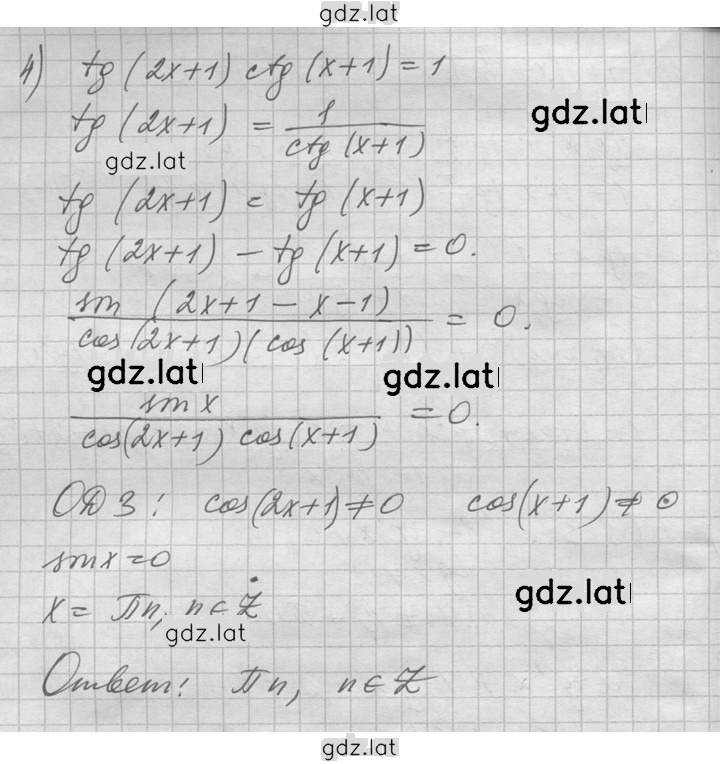 gdz.lat
4) tg (2x+1) ctg (x+1) = 1
gdz.lat
tg (2x+1) = 1 / ctg (x+1)
gdz.lat
tg (2x+1) = tg (x+1)
tg (2x+1) - tg (x+1) = 0.
sin (2x+1-x-1) / cos(2x+1)(cos (x+1)) = 0.
gdz.lat gdz.lat
sin x / cos(2x+1) cos(x+1) = 0.
ОДЗ: cos(2x+1)≠0 cos(x+1)≠0
sin x = 0
gdz.lat
x = Пn, n ∈ Z
gdz.lat
Ответ: Пn, n ∈ Z
gdz.lat